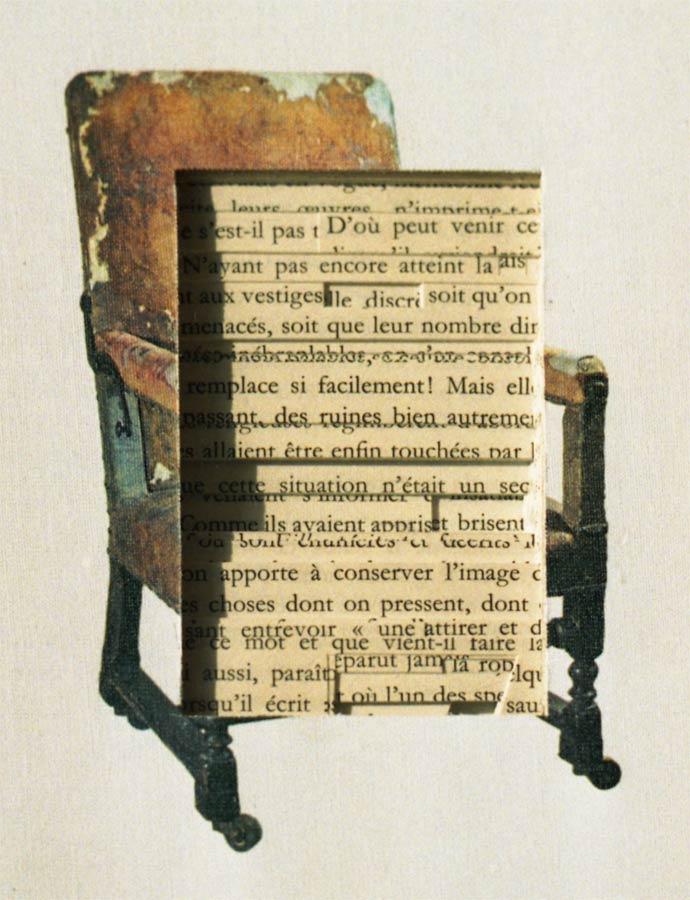 leurs œuvres, n'imprime-t-
s'est-il pas t D'où peut venir ce
N'ayant pas encore atteint la ais
aux vestiges lle discr soit qu'on
menacés, soit que leur nombre dir
inébranlables,
remplace si facilement! Mais elle
passant, des ruines bien autreme
s allaient être enfin touchées par l
ue cette situation n'était un sec
venaient s'informer
Comme ils avaient appris t brisent
on apporte à conserver l'image d
es choses dont on pressent, dont
sant entrevoir « une attirer et d
ce mot et que vient-il faire la
i aussi, paraît éparut jam la rop elqu
orsqu'il écrit : t où l'un des spe sau